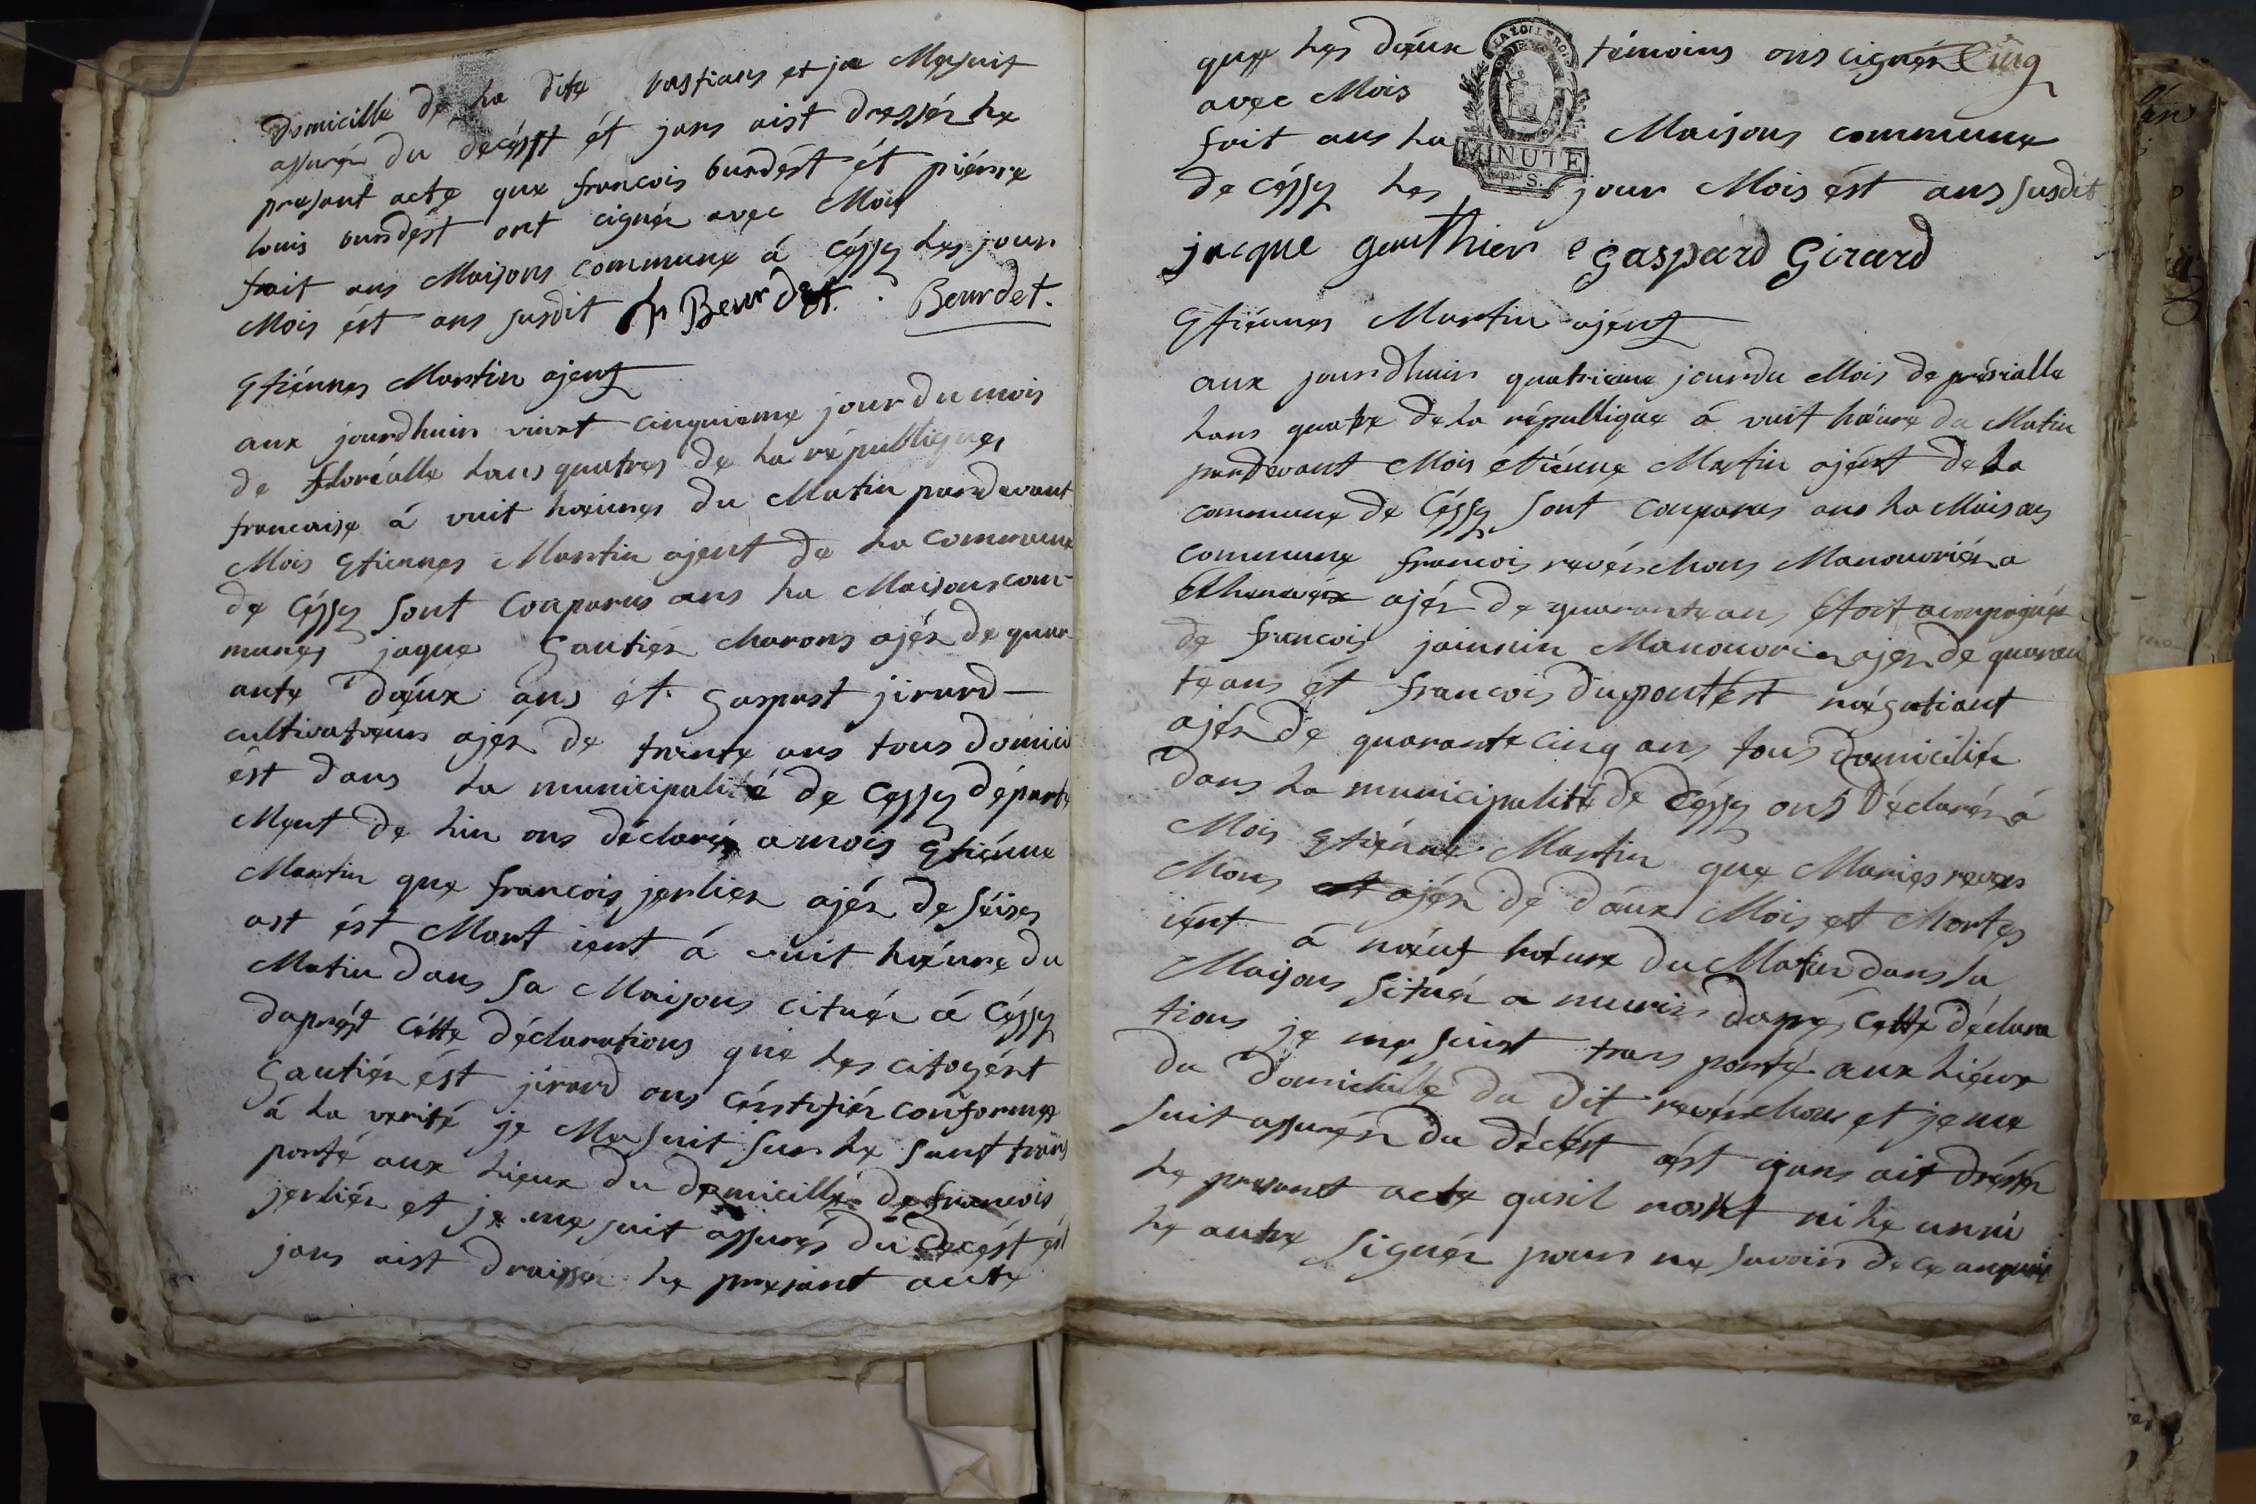 domicille de la dite vastians et je Mesuit
assurér du décésst ét jans aist dressér le
present acte que francois burdést ét piérre
louis burdést ont cignér avec Mois
frait ans Maisons commune á Céssy les jour
Mois ést ans susdit Beurdet. Beurdet.
Etiénnes Martin ajent
aux jourdhuin vinxt cinquieme jour du mois
de floriálle lans quatres de la républiques
francaise á vuit hœures du Matin pardevant
Mois Etiennes Martin ajent de la Commune
de Céssy sont Conparus ans la Maisons com-
munes jaque Gautiér charons ajér de quar
ante dœux ans ét Gaspast jirard
cultivatœurs ajér de trente ans tous domici
ést dans la municipalité de Cessy départe
Ment de lin ons déclarér a mois Etiénne
Martin que francois jerlier ajér de séises
ast ést Mort ient á vuit hœure du
Matin dans sa Maisons cituér á Céssy
daprést cétte déclarations que les citoyént
Gautiér ést jirard ons cérstifiér conformes
á la verité je Me suit sur le sant trans
porté aux lieux du domicille de francois
jerliér et je me suit assurés du decést ést
jans aist draisser le presant acte
que les dœux témoins ons cignér Cinq
avec Mois
fait ans la Maisons commune
LA LOI LE ROI
MINUTE
S.
de céssy les jour Mois ést ans susdit
jacque gauthier Gaspard Girard
Etiénnes Martin ajent
aux jourdhuin quatrieme jour du Mois de prérialle
lans quatre de la république á vuit hœure du Matin
pardevant Mois etiénne Martin ajént de la
commune de Céssy sont conparus ans la Maisons
commune francois revérchons Manouvriér a
ajér de quarante ans étoit aconpagnér
de francois joinnin Manouvrier ajér de quaran
te ans ét francois dupontést négotiant
ajér de quarante cinq ans tous domiciliér
dans la municipalité de Céssy ons déclarér á
Mois Etiénne Martin que Maries rever
chons ajér de dœux Mois et Mortes
iént á nœuf hœure du Matin dans sa
Maisons scituér a murin daprés cette déclara
tions je me suist trans porté aux liéux
du domicille du dit revérchons et je me
suit assurér du décést ést ajans ait drésér
le present acte quil nosnt ni le un ni
le autre signér pour ne savoir de ce anquis